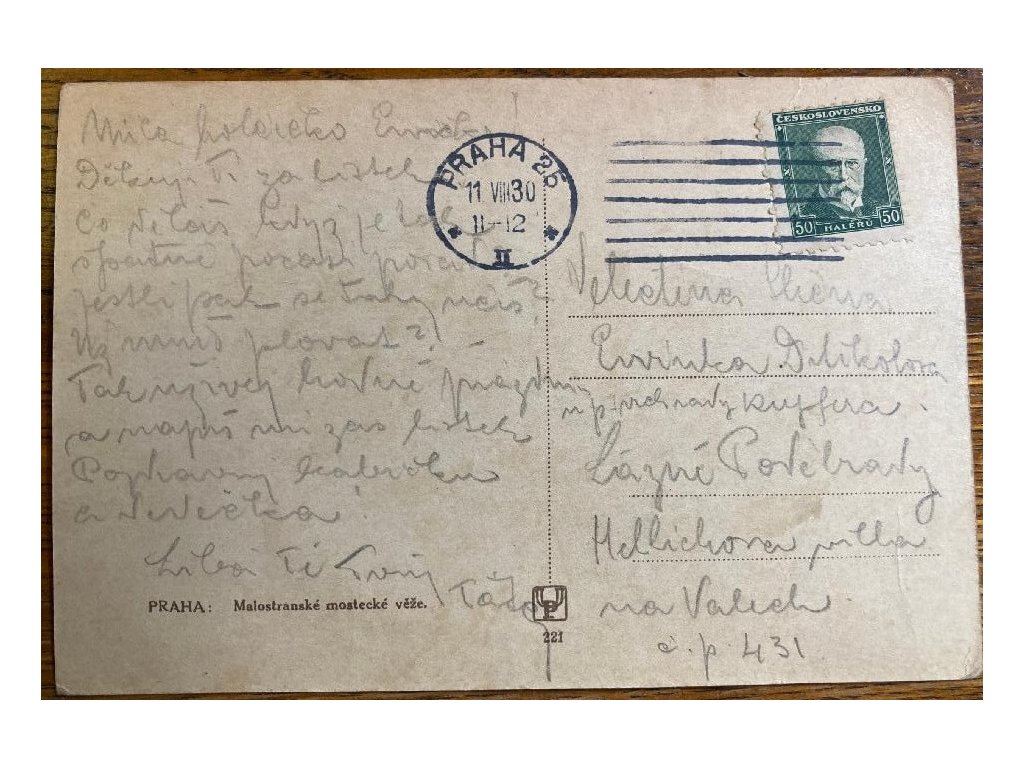 Milá holčičko
Děkuji Ti za lístek
Co děláš když je tak
špatné počasí
jestli pak se taky učíš?
Už umíš plovat?
Tak užívej hodně prázdnin
a napiš mi zas lístek
Pozdravuj babičku
a dědečka!
Líbá Tě Tvůj
PRAHA: Malostranské mostecké věže.
221
PRAHA 25
11 VIII 30
11-12
II
ČESKOSLOVENSKO
50 HALÉŘŮ 50
Velectěná Slečna
Evinka
Kupfera
Lázně Poděbrady
Hellichova villa
na Valech
č.p. 431